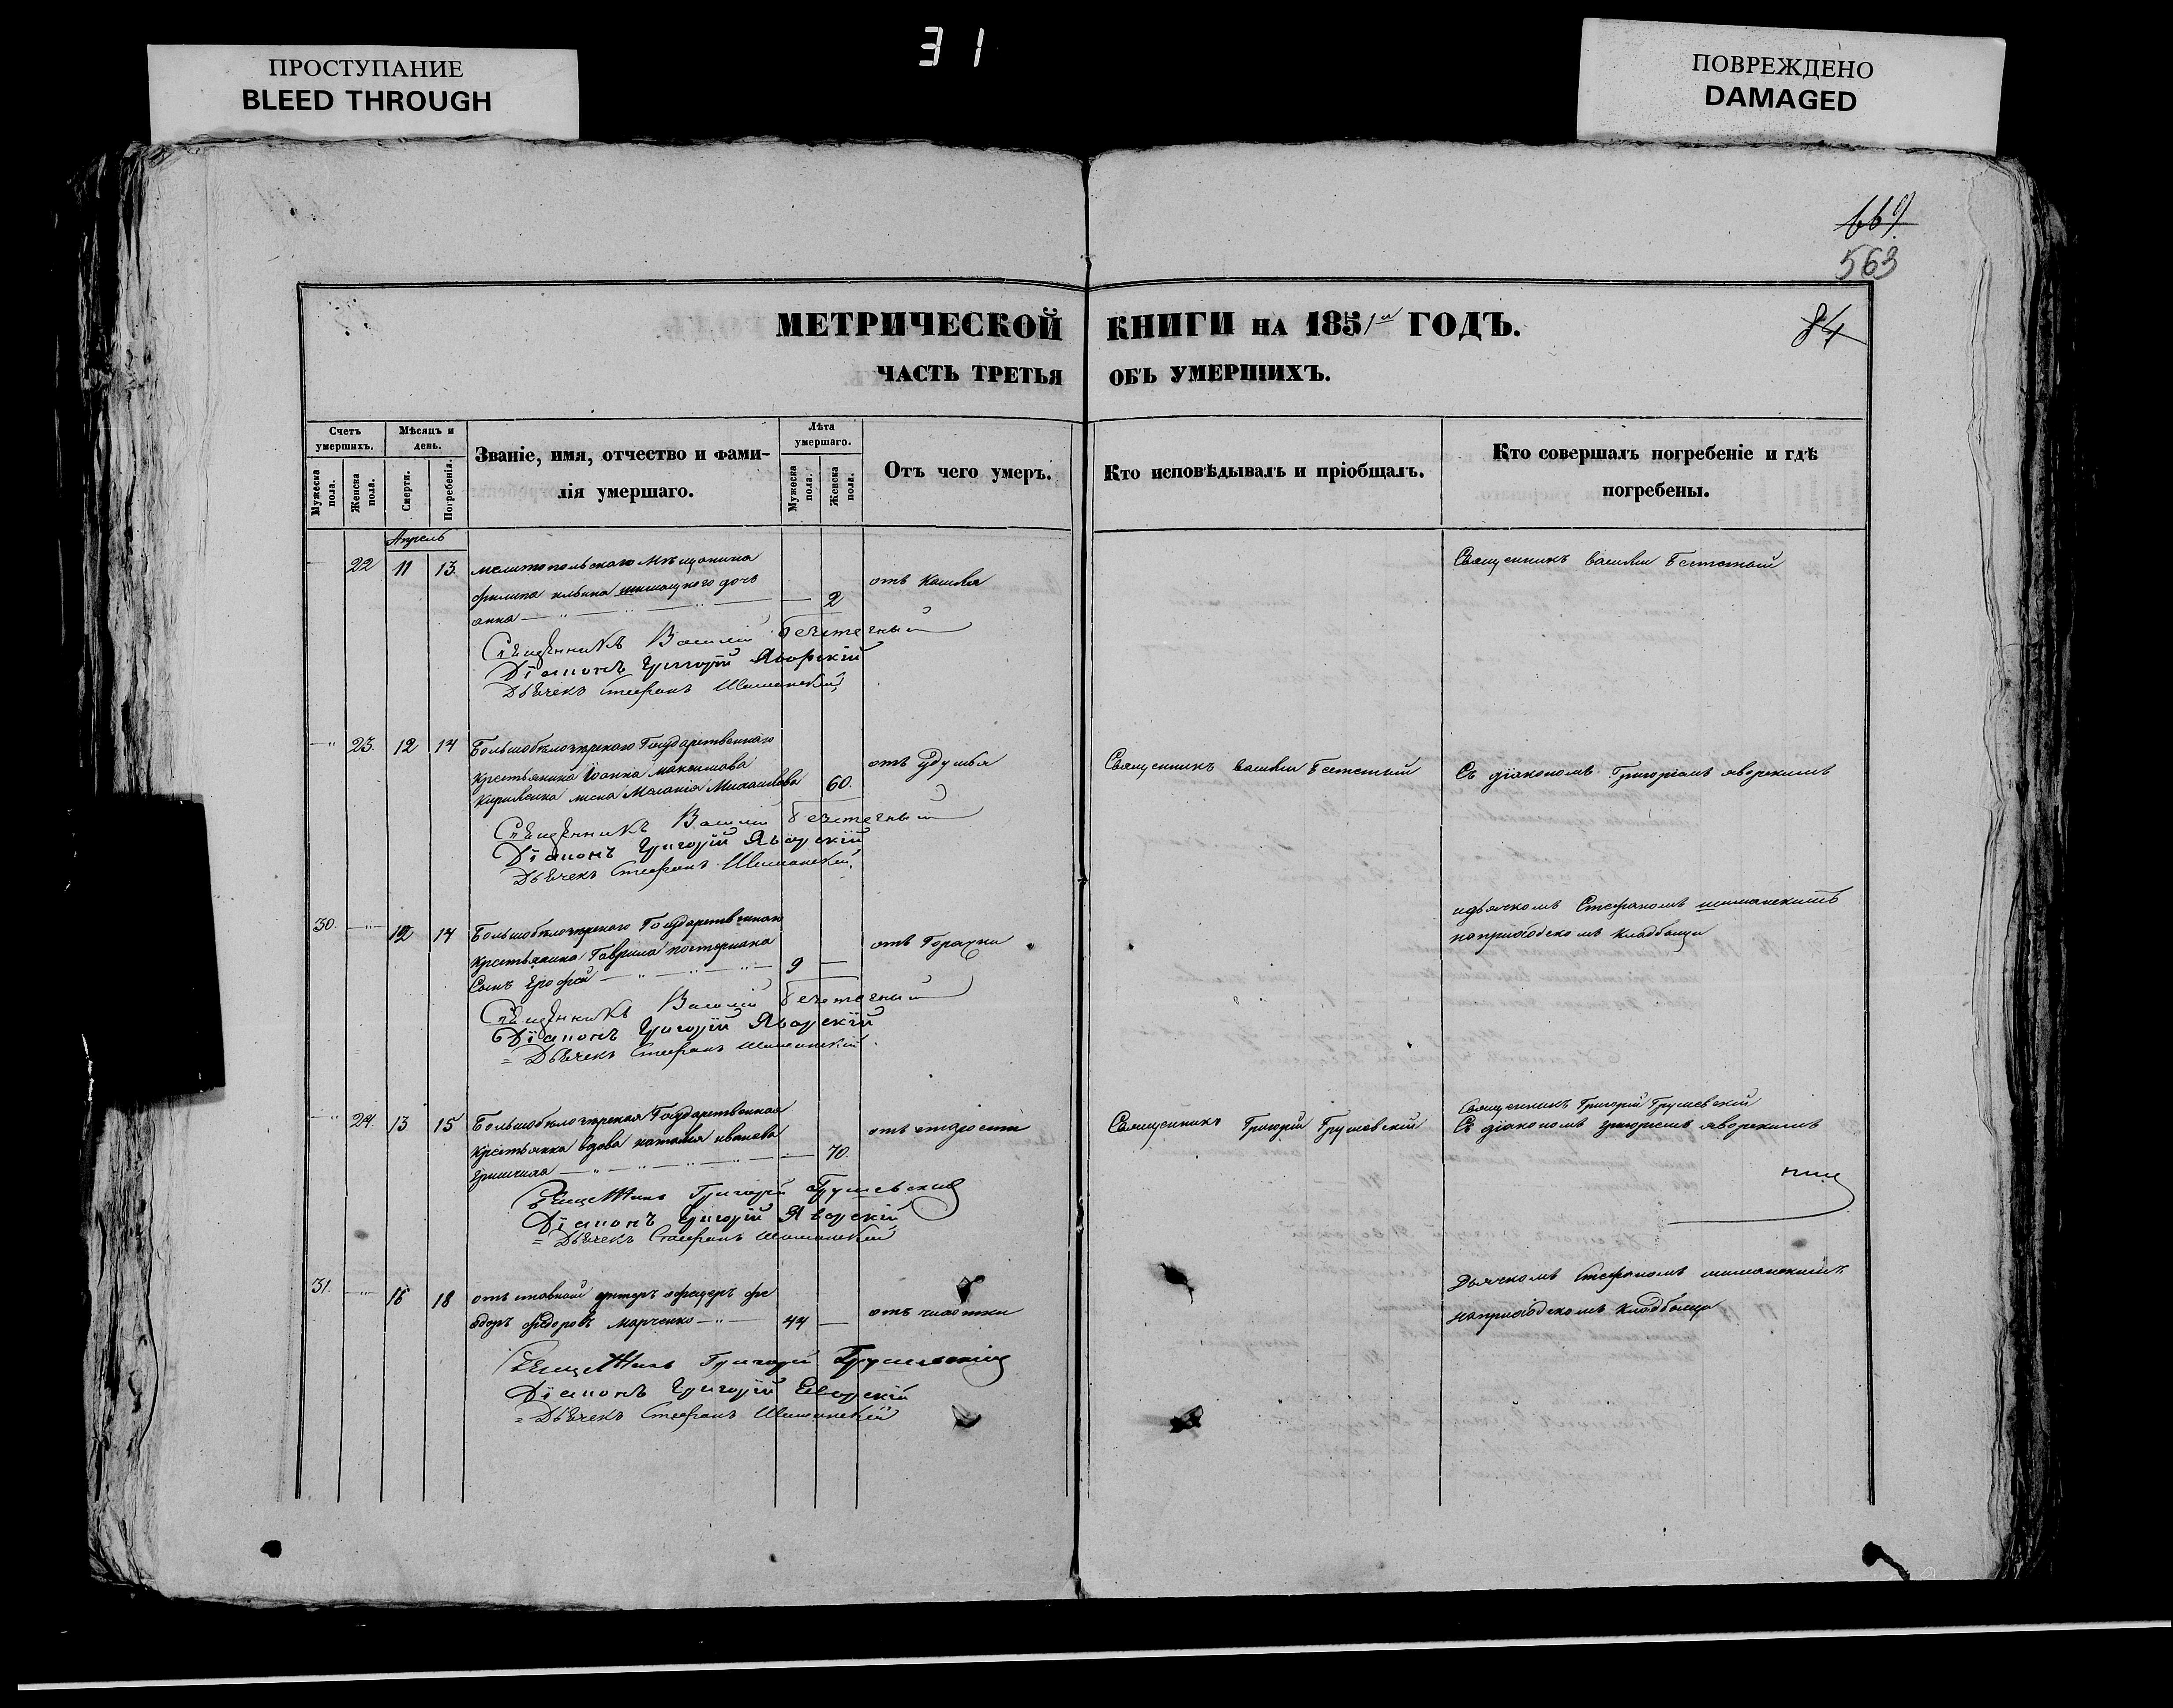 31
ПРОСТУПАНИЕ
BLEED THROUGH
ПОВРЕЖДЕНО
DAMAGED
669
563
84
МЕТРИЧЕСКОЙ КНИГИ НА 1851 ГОДЪ.
ЧАСТЬ ТРЕТЬЯ ОБЪ УМЕРШИХЪ.
Счетъ умершихъ.
Мужеска пола.
Женска пола.
Мѣсяцъ и день.
Смерти.
Погребенія.
Званіе, имя, отчество и фами-
лія умершаго.
Лѣта умершаго.
Мужеска пола.
Женска пола.
Отъ чего умеръ.
Кто исповѣдывалъ и пріобщалъ.
Кто совершалъ погребеніе и гдѣ
погребены.
Апрель
22 11 13 мелитопольскаго мѣщанина
филипа ильина дочь
анна 2 отъ кашля
Священникъ Василій
Священникъ Василій
Діаконъ Григорій Яворскій
Дьячекъ Стефанъ Шиманскій
23. 12 14 Большобѣлозерскаго Государственнаго
крестьянина Іоанна максимова
Кириленка жена Меланія Михайлова 60. отъ удушья
Священникъ василій
Съ діакономъ Григоріемъ яворскимъ
Священникъ Василій
Діаконъ Григорій Яворскій
Дьячекъ Стефанъ Шиманскій
30. 12 14 Большобѣлозерскаго Государственнаго
крестьянина Гаврила
Сынъ Ерофей 9 отъ Горячки
идьячкомъ Стефаномъ шиманскимъ
наприходскомъ кладбищѣ
Священникъ Василій
Діаконъ Григорій Яворскій
Дьячекъ Стефанъ Шиманскій
24. 13 15 Большобѣлозерская Государственная
крестьянка вдова наталія иванова
70. отъ старости
Священникъ Григорій Грушевскій
Священникъ Григорій Грушевскій
Съ діакономъ григоріемъ яворскимъ
Григорій Грушевскій
Діаконъ Григорій Яворскій
Дьячекъ Стефанъ Шиманскій
31. 16 18 отъставной унтеръ офицеръ фе
одоръ федоровъ марченко 44 отъ чахотки
Дьячкомъ Стефаномъ шиманскимъ
наприходскомъ кладбищѣ
Григорій Грушевскій
Діаконъ Григорій Яворскій
Дьячекъ Стефанъ Шиманскій